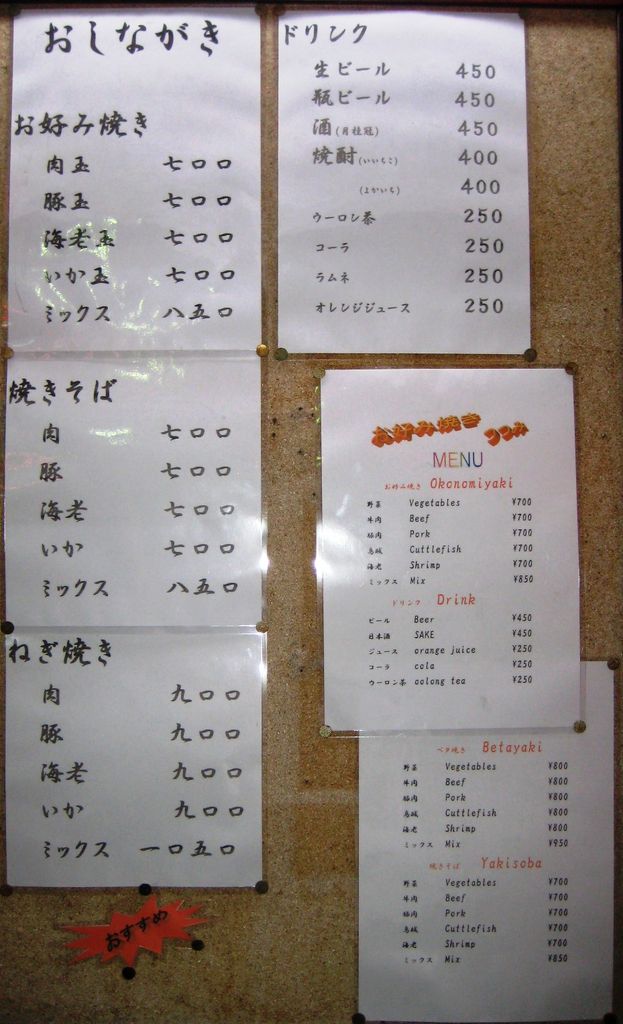 おしながき
お好み焼き
肉玉 七〇〇
豚玉 七〇〇
海老玉 七〇〇
いか玉 七〇〇
ミックス 八五〇
焼きそば
肉 七〇〇
豚 七〇〇
海老 七〇〇
いか 七〇〇
ミックス 八五〇
ねぎ焼き
肉 九〇〇
豚 九〇〇
海老 九〇〇
いか 九〇〇
ミックス 一〇五〇
おすすめ
ドリンク
生ビール 450
瓶ビール 450
酒(月桂冠) 450
焼酎(いいちこ) 400
(よかいち) 400
ウーロン茶 250
コーラ 250
ラムネ 250
オレンジジュース 250
お好み焼き つつみ
MENU
お好み焼き Okonomiyaki
野菜 Vegetables ¥700
牛肉 Beef ¥700
豚肉 Pork ¥700
烏賊 Cuttlefish ¥700
海老 Shrimp ¥700
ミックス Mix ¥850
ドリンク Drink
ビール Beer ¥450
日本酒 SAKE ¥450
ジュース orange juice ¥250
コーラ cola ¥250
ウーロン茶 oolong tea ¥250
ベタ焼き Betayaki
野菜 Vegetables ¥800
牛肉 Beef ¥800
豚肉 Pork ¥800
烏賊 Cuttlefish ¥800
海老 Shrimp ¥800
ミックス Mix ¥950
焼きそば Yakisoba
野菜 Vegetables ¥700
牛肉 Beef ¥700
豚肉 Pork ¥700
烏賊 Cuttlefish ¥700
海老 Shrimp ¥700
ミックス Mix ¥850